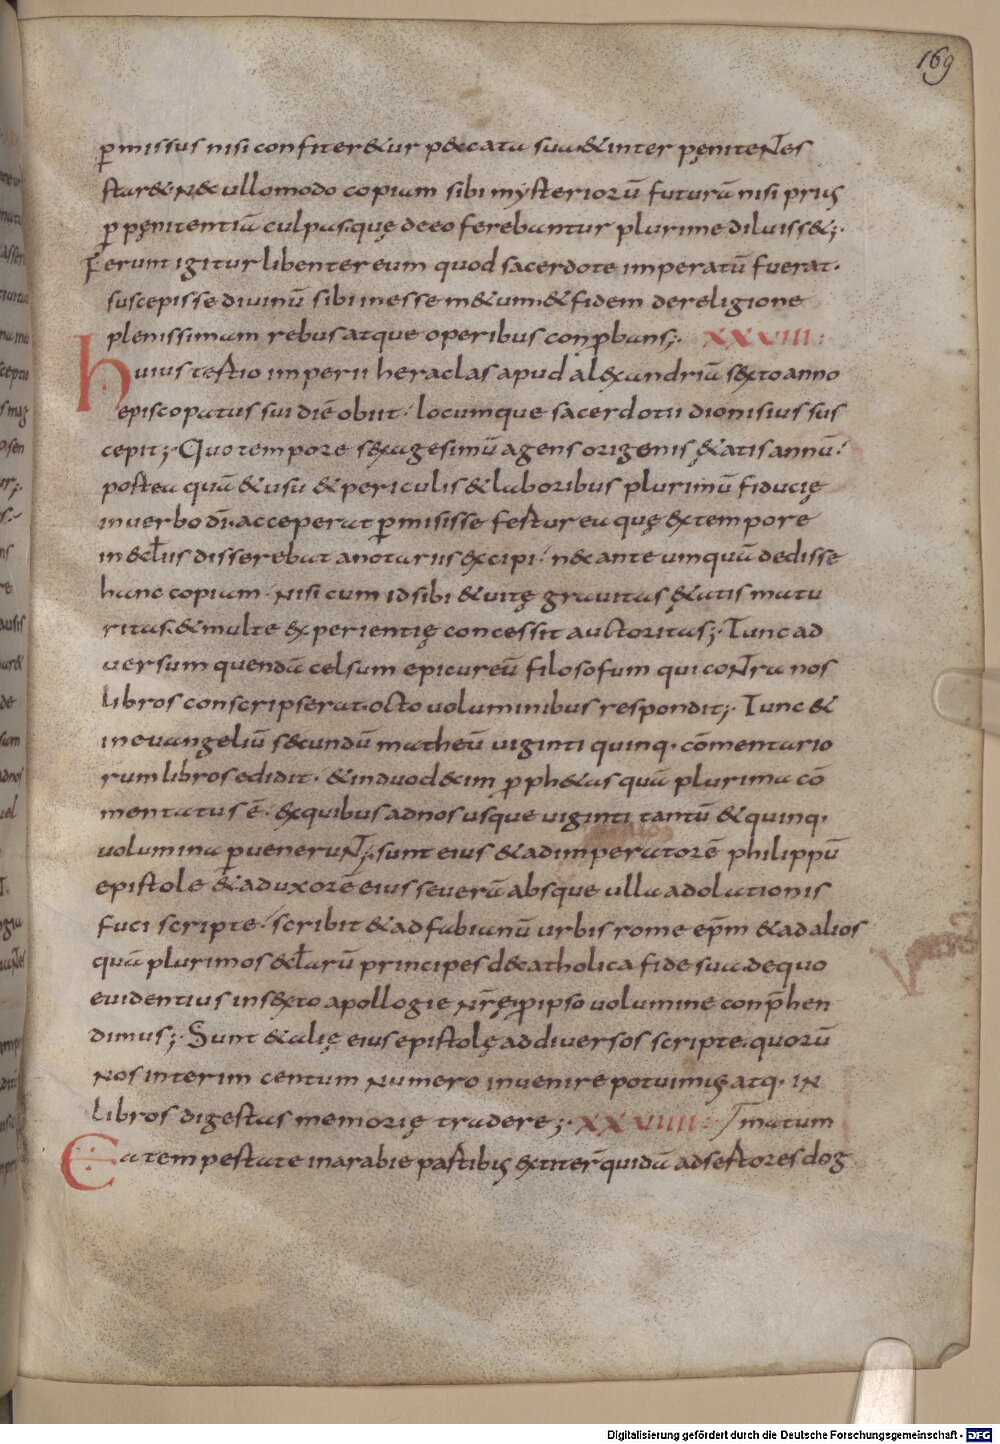 169
ꝑmissus nisi confiter&ur p&ccata sua·&inter pęniteNtes
star&· N&cullomodo copiam sibi mysteriorū futurā nisi priꝰ
ꝑ pęnitentiā culpas·quę deeo ferebantur plurime diluiss&;·
Ferunt igitur libenter eum quod sacerdote imperatū fuerat·
suscepisse divinū sibi inesse m&um·&fidem dereligione
plenissimam rebus atque operibus conꝓbans;· XXVIII·
huius testio imperii heraclas apud alexandriā sexto anno
episcopatus sui diē obiit· locumque sacerdotii dionisius sus
cepit;· Quo tempore sexagesimū agens origenis &atis annū·
postea quā & usu & periculis & laboribus plurimū fiducię
inverbo dī·acceperat ꝑmisisse fertur ea quę extempore
in eccłiis disserebat anotariis excipi· n&c ante umquā dedisse
hanc copiam· Nisi cum id sibi & vitę gravitas &atis matu
ritas·& multe experientię concessit auctoritas;· Tunc ad
versum quendā celsum epicureū filosofum qui coNtra nos
libros conscripserat·octo voluminibus respondit;· Tunc &
inevangeliū secundū matheū viginti quinq· cōmentario
rum libros edidit· &induodecim ꝓph&as quā plurima cō
mentatus ē· exquibus adnos usque viginti tantū & quinq·
volumina ꝑveneruNt;·sunt eius &adimperatorē philippū
epistole &aduxorē eius severā absque ulla adolationis
fuci scripte· scribit &ad fabianū urbis rome ep̄m &ad alios
quā plurimos eccłarū principes d&catholica fide sua·dequo
evidentius insexto apollogie Nr̄ę ꝓipso volumine conp̄hen
dimus;· Sunt &alię eius epistolę addiversos scripte·quorū
Nos interim centum Numero invenire potuimꝰ atq· IN
libros digestas memorię tradere;· XXVIIII· matum
Ea tempestate inarabie partibꝰ extiter̄ quidā adsertores dog